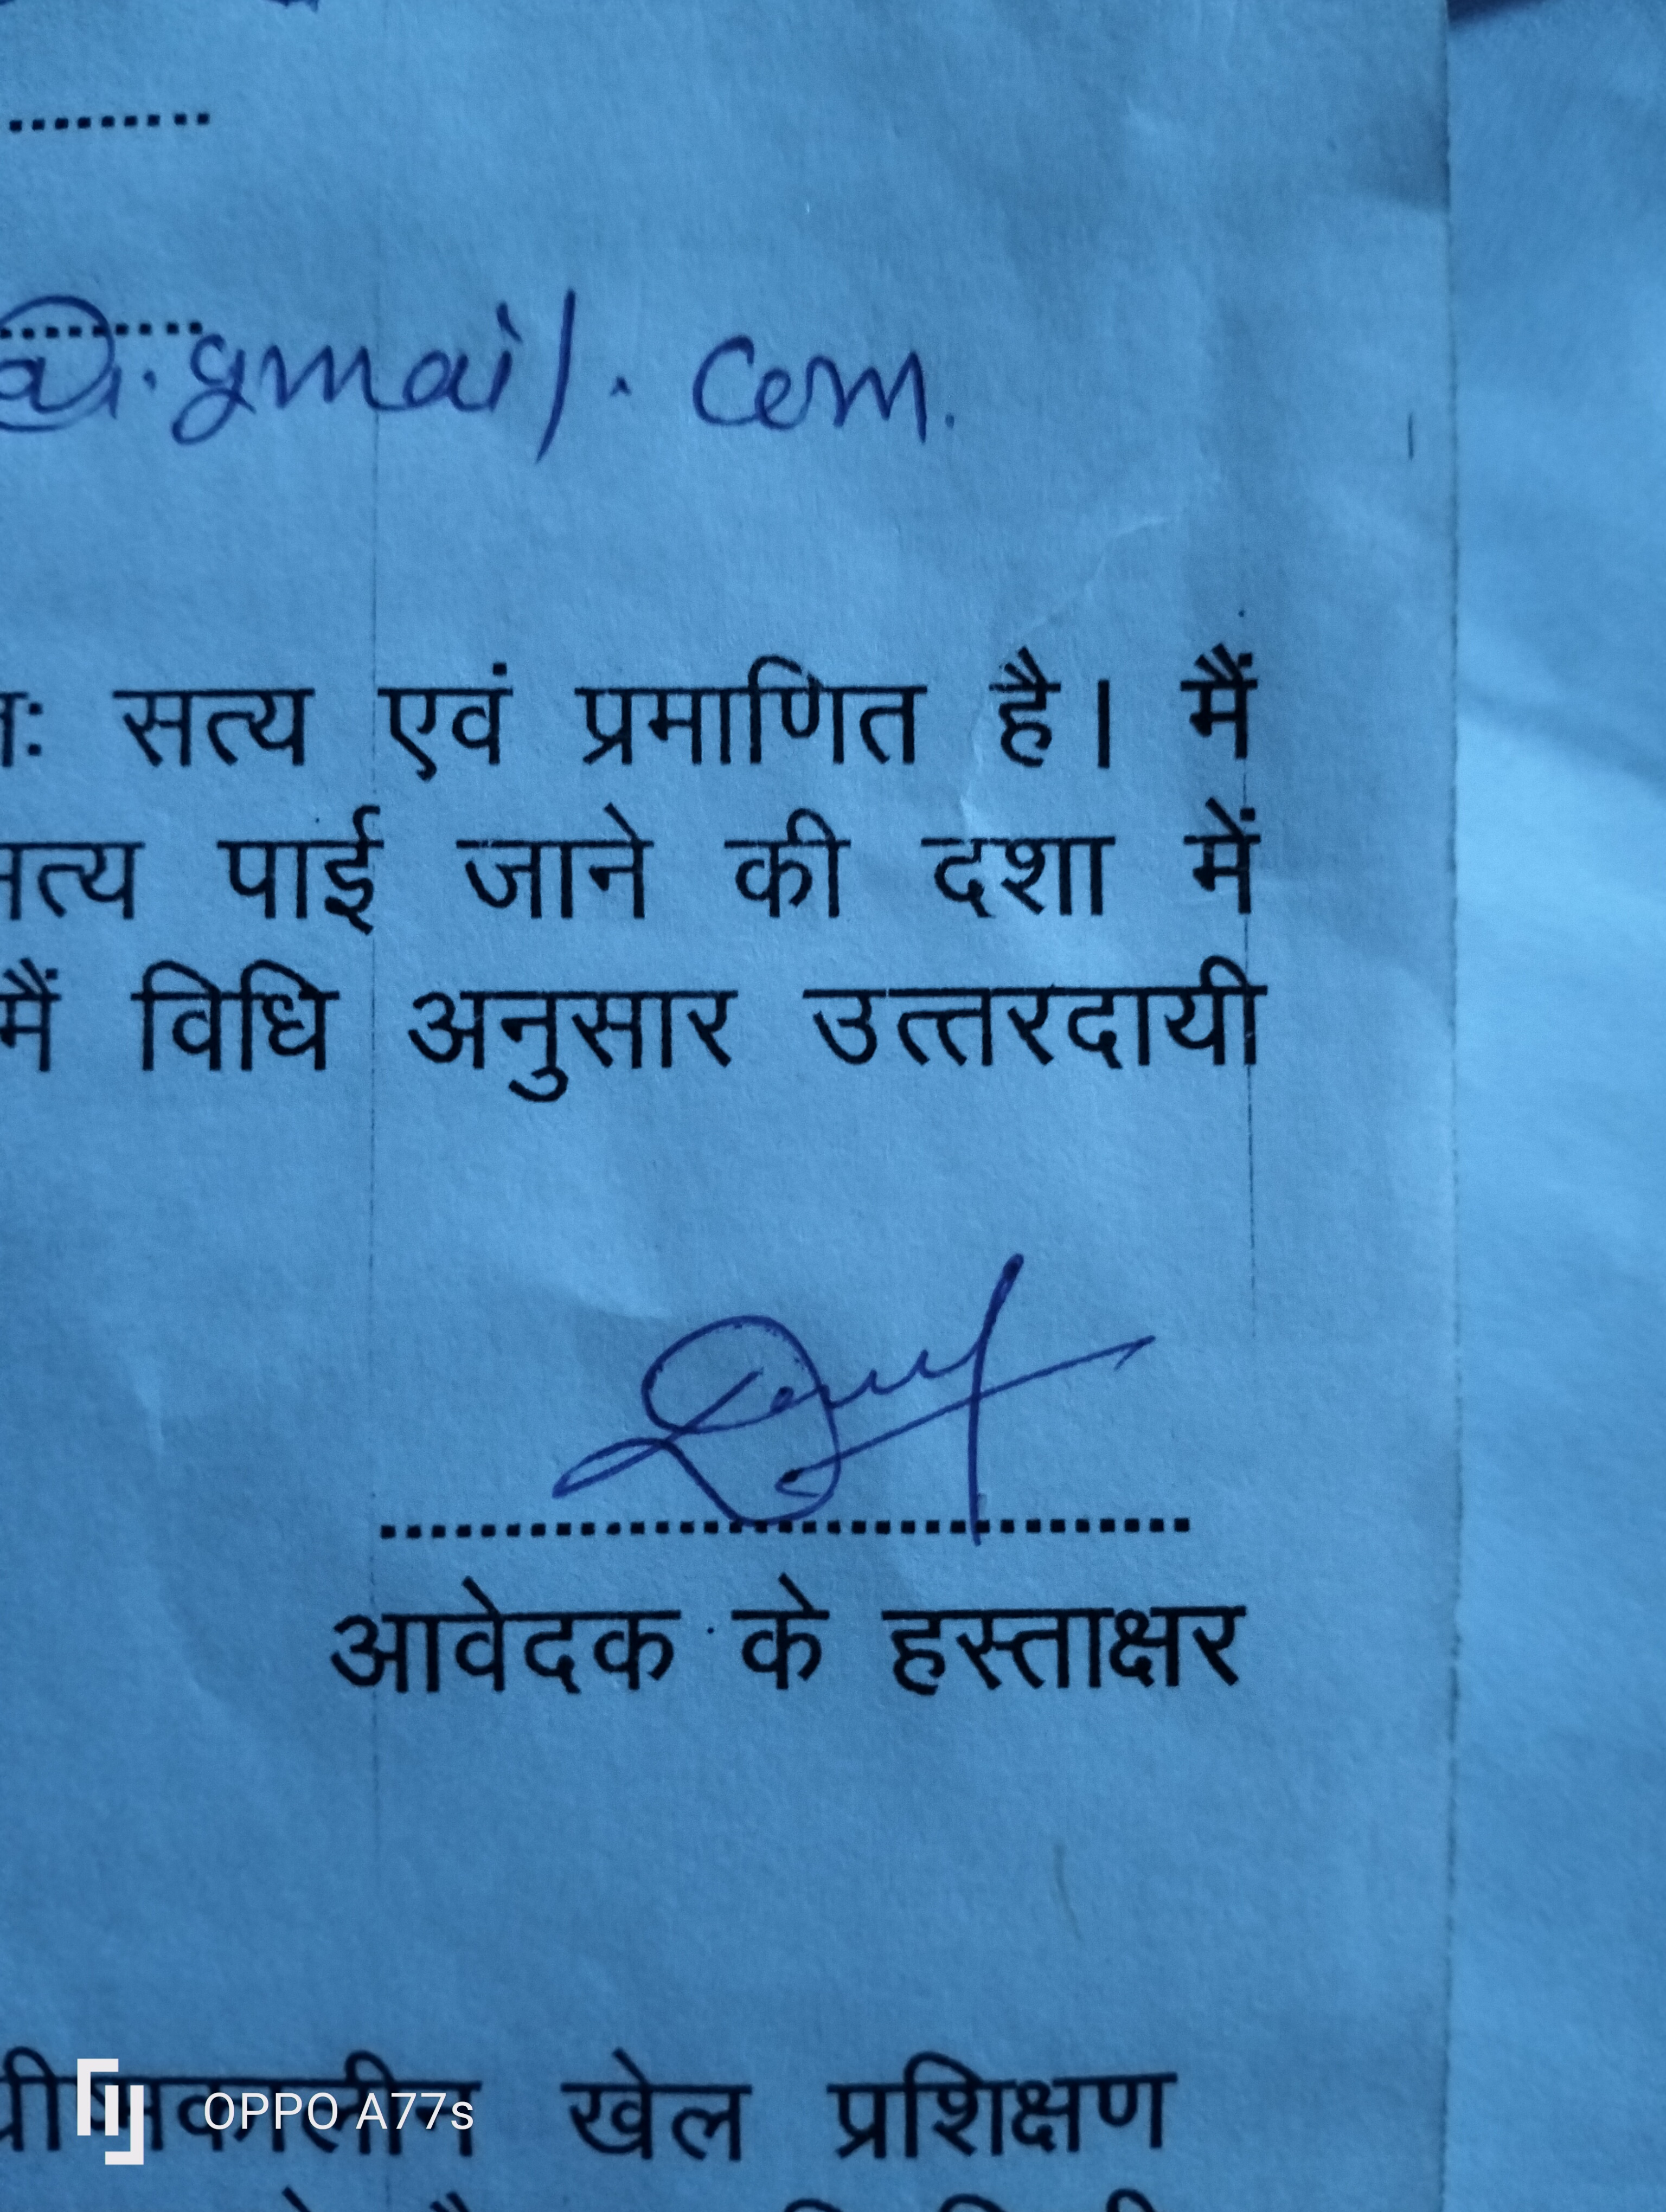 .........
@.gmail. com.
सत्य एवं प्रमाणित है। मैं
पाई जाने की दशा में
मैं विधि अनुसार उत्तरदायी
आवेदक के हस्ताक्षर
ग्रीष्मकालीन खेल प्रशिक्षण
OPPO A77s